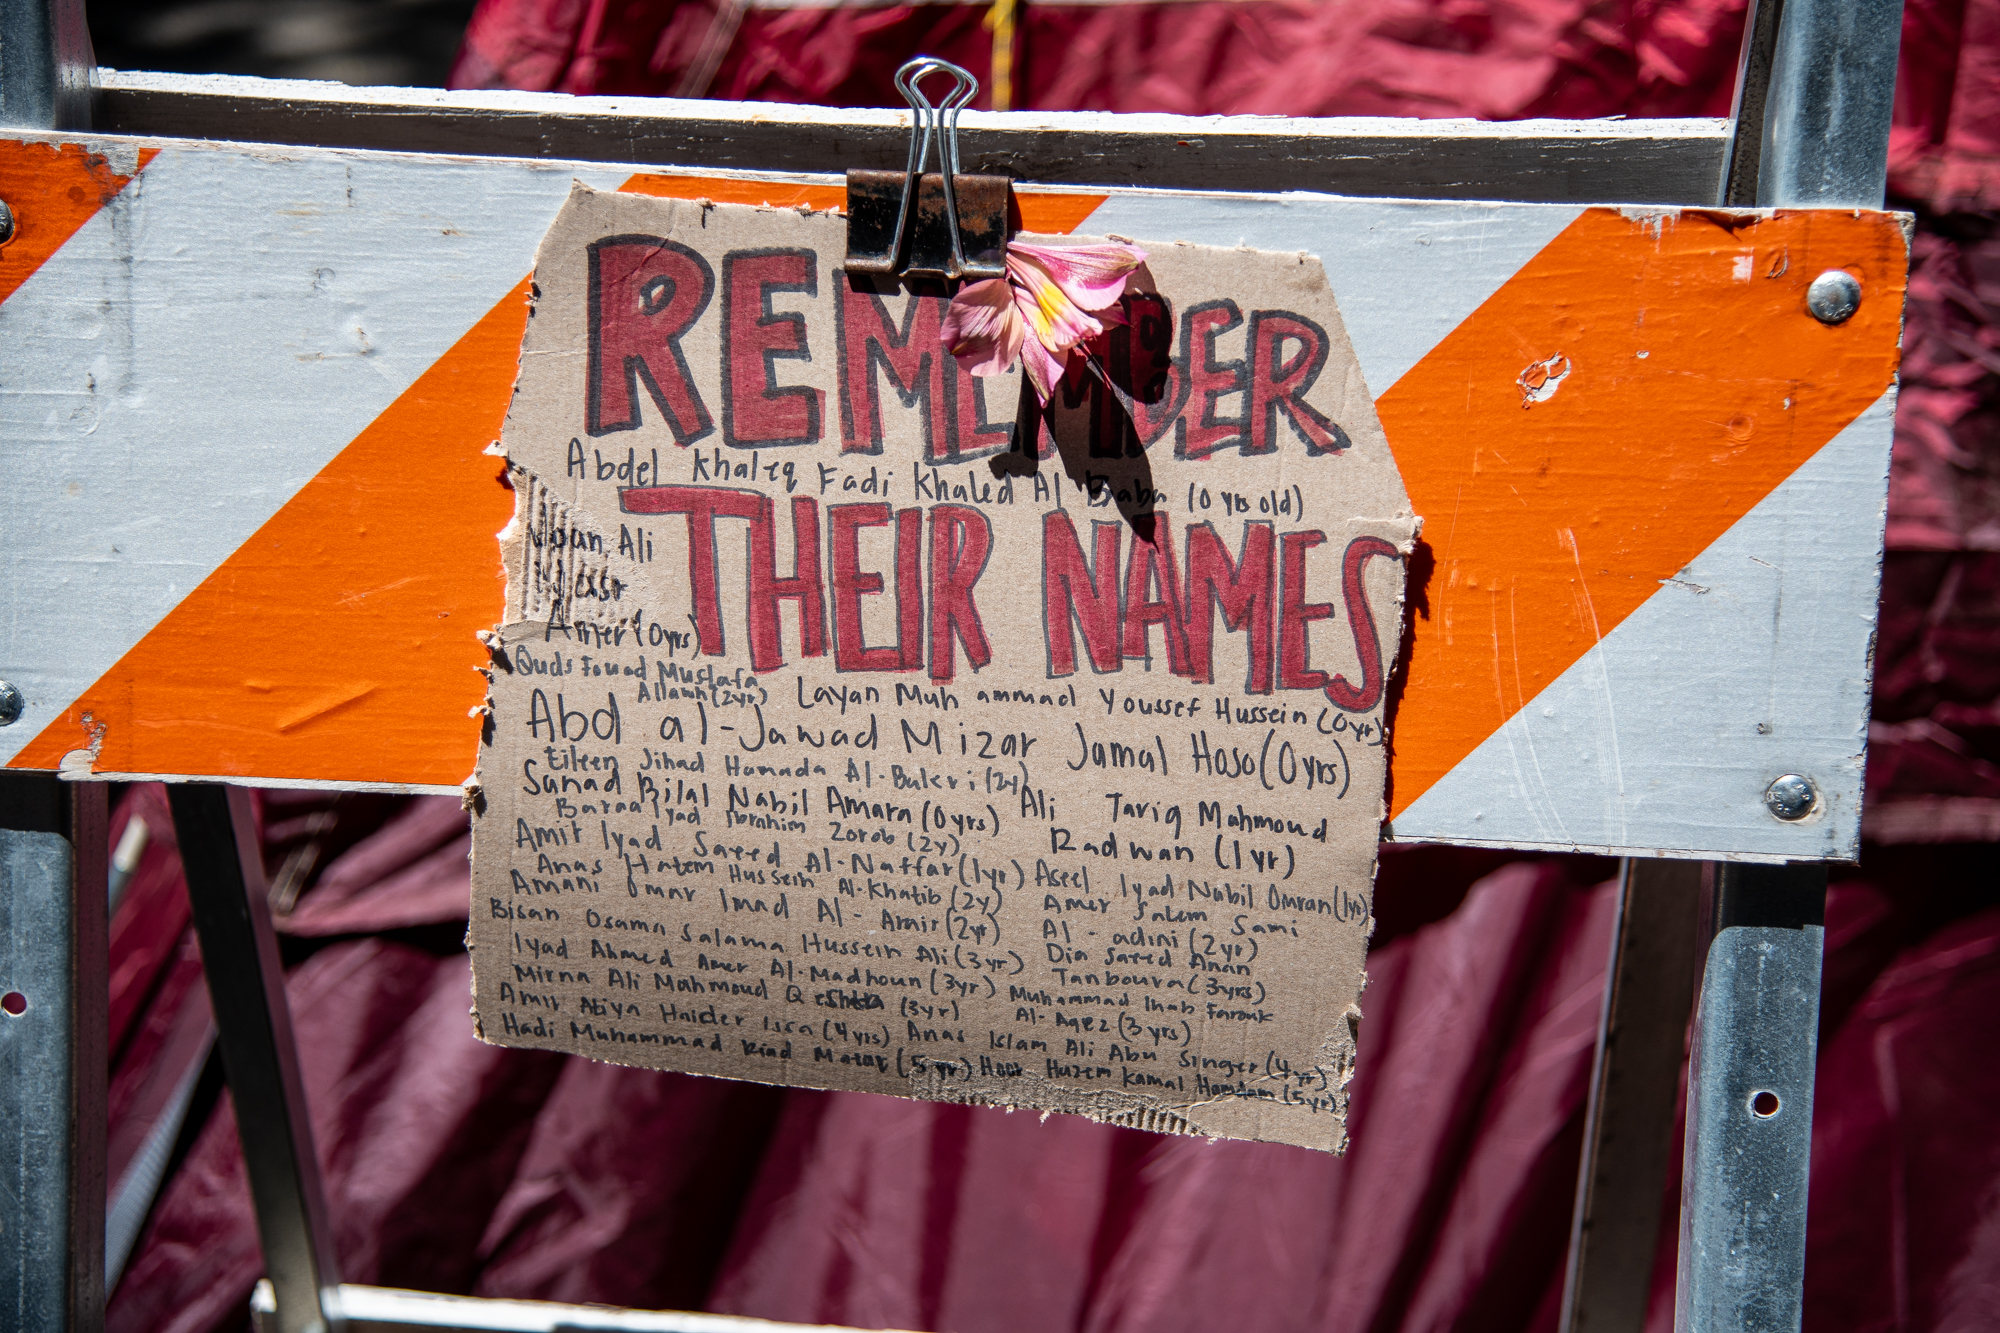 REMEMBER
Abdel Khaleq Fadi Khaled Al Baba (0 yrs old)
THEIR NAMES
Ali
Yasr
Amer (0yrs)
Quds Fouad Mustafa
Allamh (2yr)
Layan Muhammad Youssef Hussein (0yr)
Abd al-Jawad Mizar Jamal Hoso (0yrs)
Eileen Jihad Hamada Al-Buleri (2y)
Sanad Bilal Nabil Amara (0yrs)
Ali Tariq Mahmoud
Radwan (1yr)
Baraa Iyad Ibrahim Zorob (2y)
Amir Iyad Saeed Al-Naffar (1yr)
Aseel Iyad Nabil Omran (1yr)
Anas Hatem Hussein Al-Khatib (2y)
Amer Salem Sami
Al-adini (2yr)
Amani Omar Imad Al-Amir (2yr)
Bisan Osama Salama Hussein Ali (3yr)
Dia Saeed Anan
Tanboura (3yrs)
Iyad Ahmed Amer Al-Madhoun (3yr)
Muhammad Ihab Farouk
Al-Aqez (3yrs)
Mirna Ali Mahmoud (3yr)
Amir Atiya Haider Issa (4yrs)
Anas Islam Ali Abu Singer (4yr)
Hadi Muhammad Riad Matar (5yr)
Hoor Hazem Kamal Hamdam (5yr)